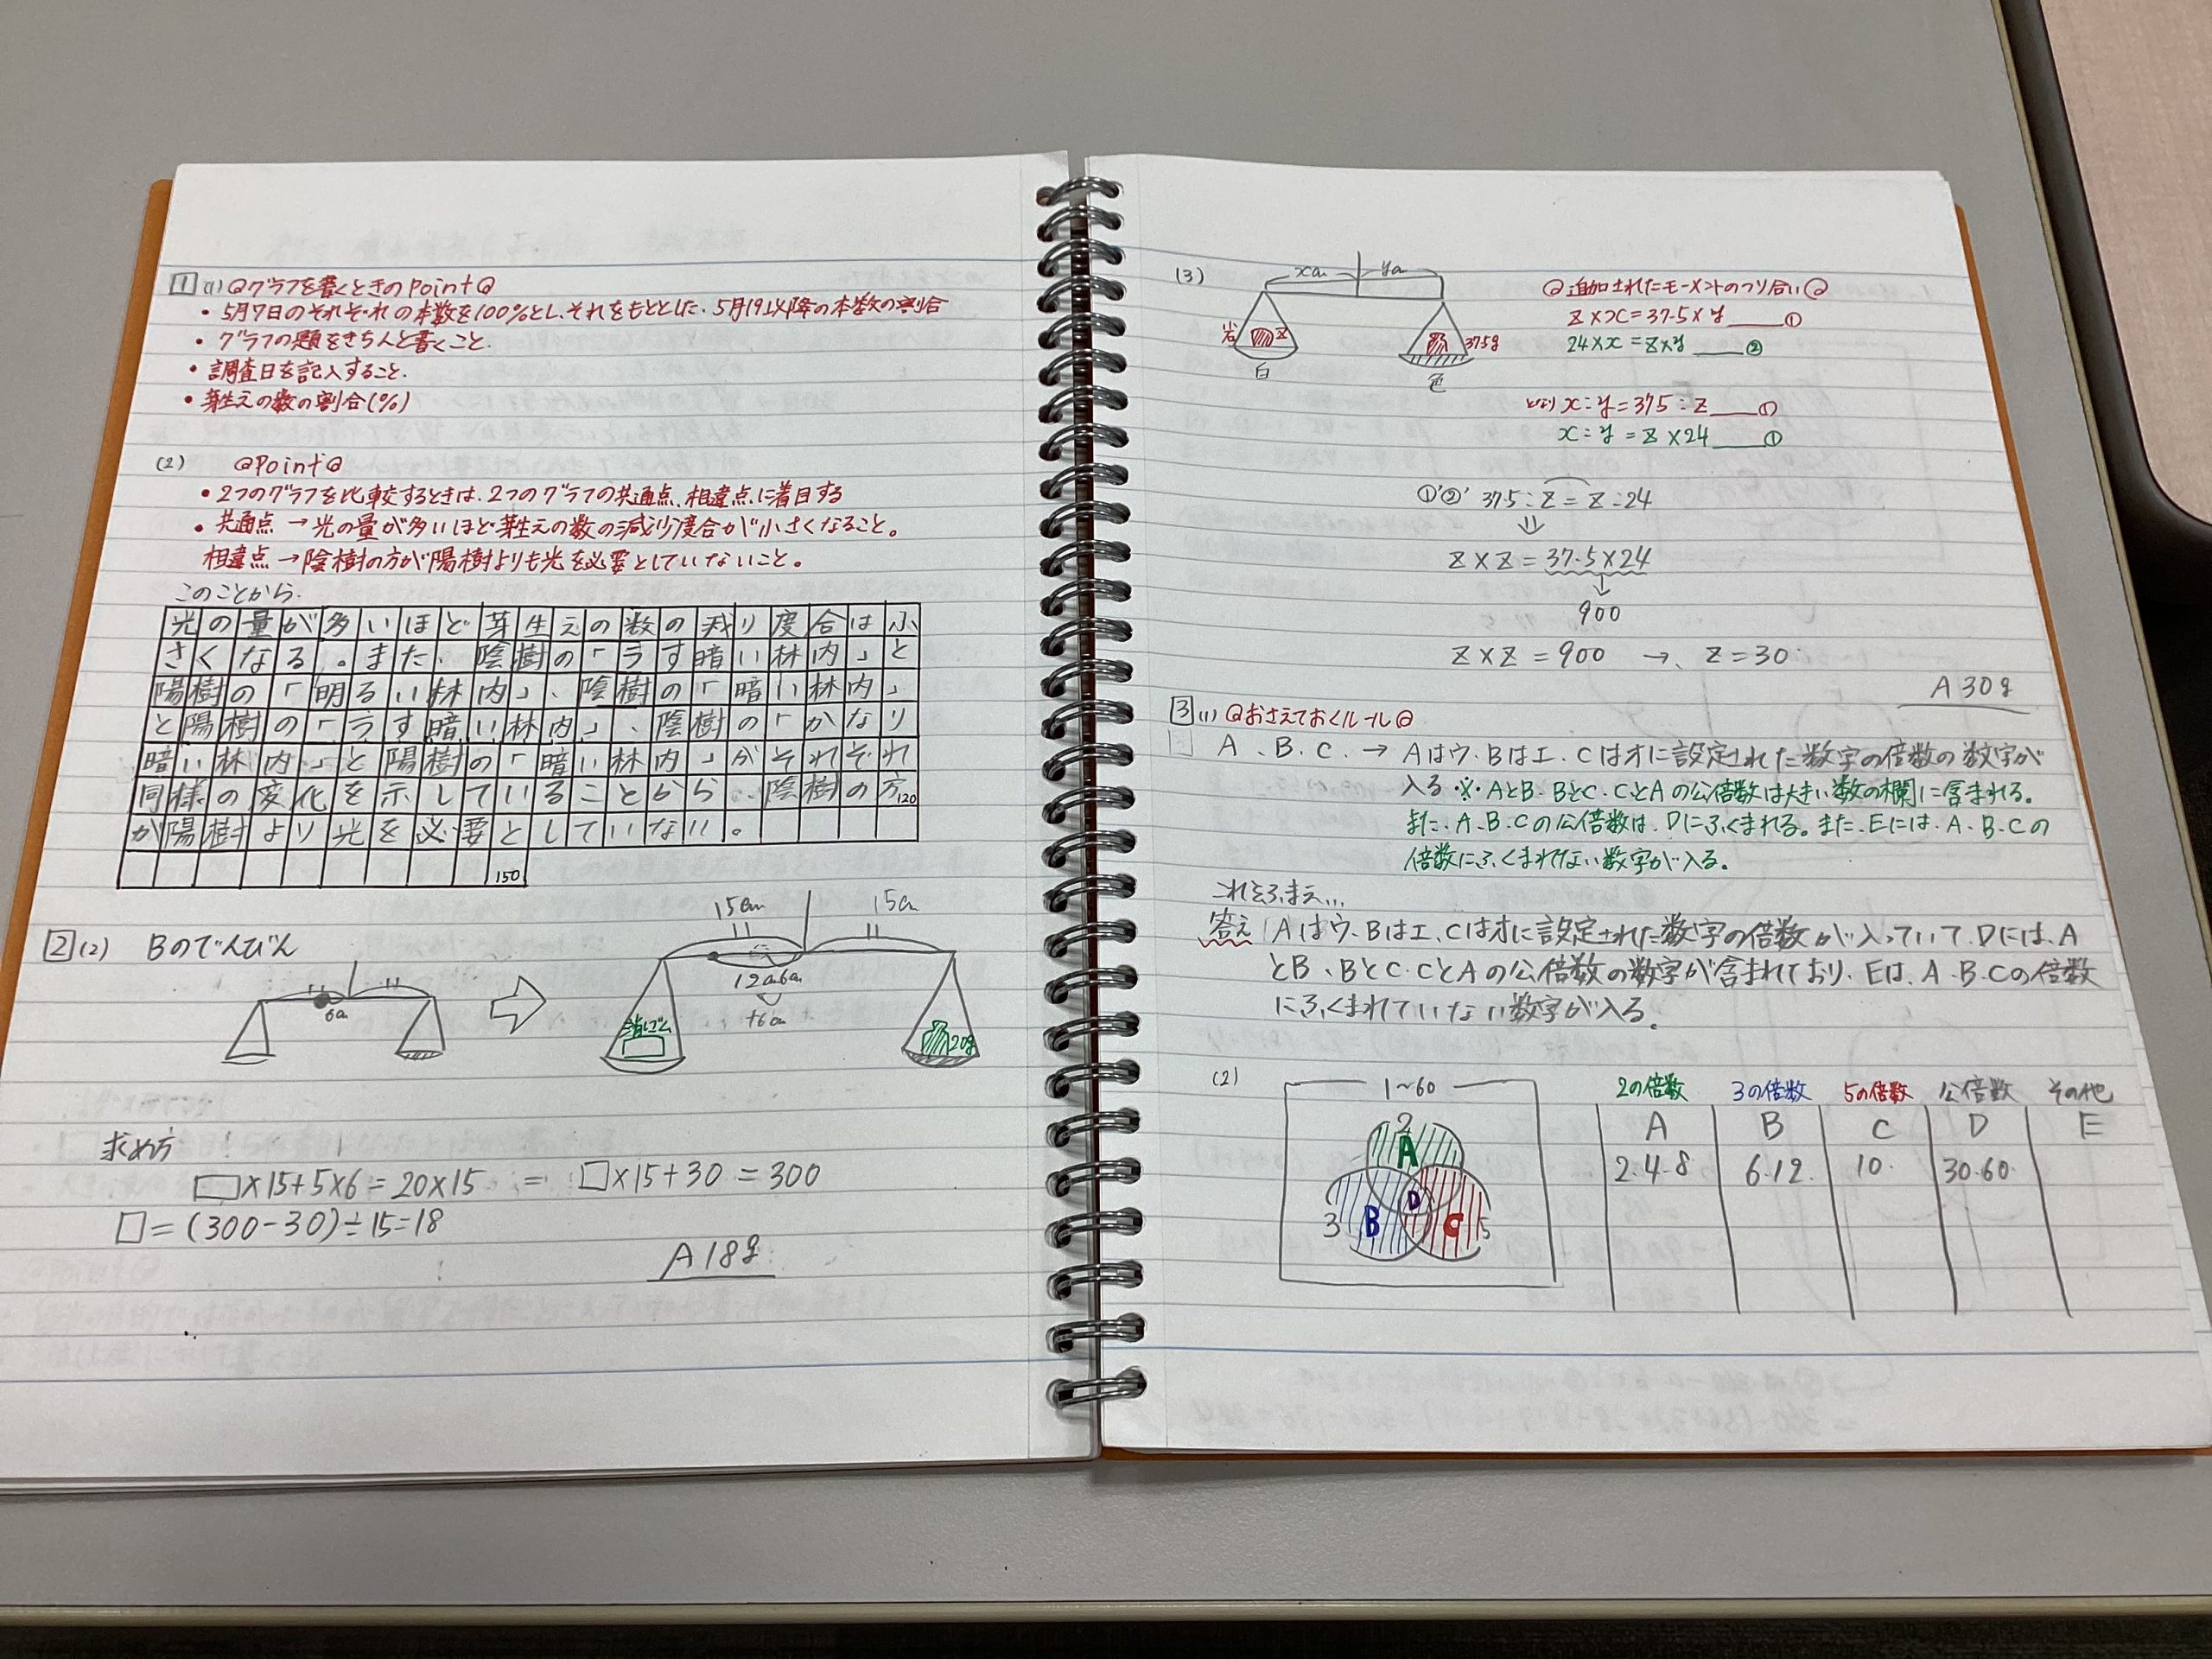 1 (1) グラフを書くときのpoint
・5月7日のそれぞれの本数を100%とし、それをもととした、5月19以降の本数の割合
・グラフの題をきちんと書くこと.
・調査日を記入すること.
・芽生えの数の割合(%)
(2) Point
・2つのグラフを比較するときは、2つのグラフの共通点、相違点に着目する
・共通点→光の量が多いほど芽生えの数の減少度合が小さくなること。
相違点→陰樹の方が陽樹よりも光を必要としていないこと。
このことから.
光の量が多いほど芽生えの数の減り度合は小
さくなる。また、陰樹の「うす暗い林内」と
陽樹の「明るい林内」、陰樹の「暗い林内」
と陽樹の「うす暗い林内」、陰樹の「かなり
暗い林内」と陽樹の「暗い林内」がそれぞれ
同様の変化を示していることから、陰樹の方 120
が陽樹より光を必要としていない。
150
2 (2) Bのてんびん
6cm
15cm 15cm
12cm 6cm
+6cm
消しゴム
20g
求め方
□×15+5×6=20×15 = □×15+30=300
□=(300-30)÷15=18
A 18g
(3)
xcm ycm
岩 z 37.5g
白 色
追加されたモーメントのつり合い
z×x=37.5×y ①
24×x=z×y ②
となり x:y=37.5:z ①
x:y=z×24 ①
①'②' 37.5:z=z:24
z×z=37.5×24
900
z×z=900 → z=30
A 30g
3 (1) おさえておくルール
A、B、C、→ Aはウ、Bはエ、Cはオに設定された数字の倍数の数字が
入る ※・AとB、BとC、CとAの公倍数は大きい数の欄に含まれる。
また、A、B、Cの公倍数は、Dにふくまれる。また、Eには、A、B、Cの
倍数にふくまれてない数字が入る。
これをふまえ...
答え Aはウ、Bはエ、Cはオに設定された数字の倍数が入っていて、Dには、A
とB、BとC、CとAの公倍数の数字が含まれており、Eは、A、B、Cの倍数
にふくまれていない数字が入る。
(2)
1~60
2
A
D
3 B C 5
2の倍数 3の倍数 5の倍数 公倍数 その他
A B C D E
2.4.8 6.12. 10. 30.60.